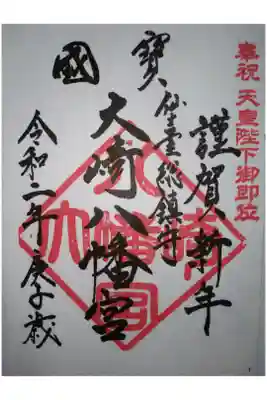 奉祝 天皇陛下御即位
謹賀新年
國寳
仙臺総鎮守
大崎八幡宮
令和二年庚子歳
大崎八幡宮